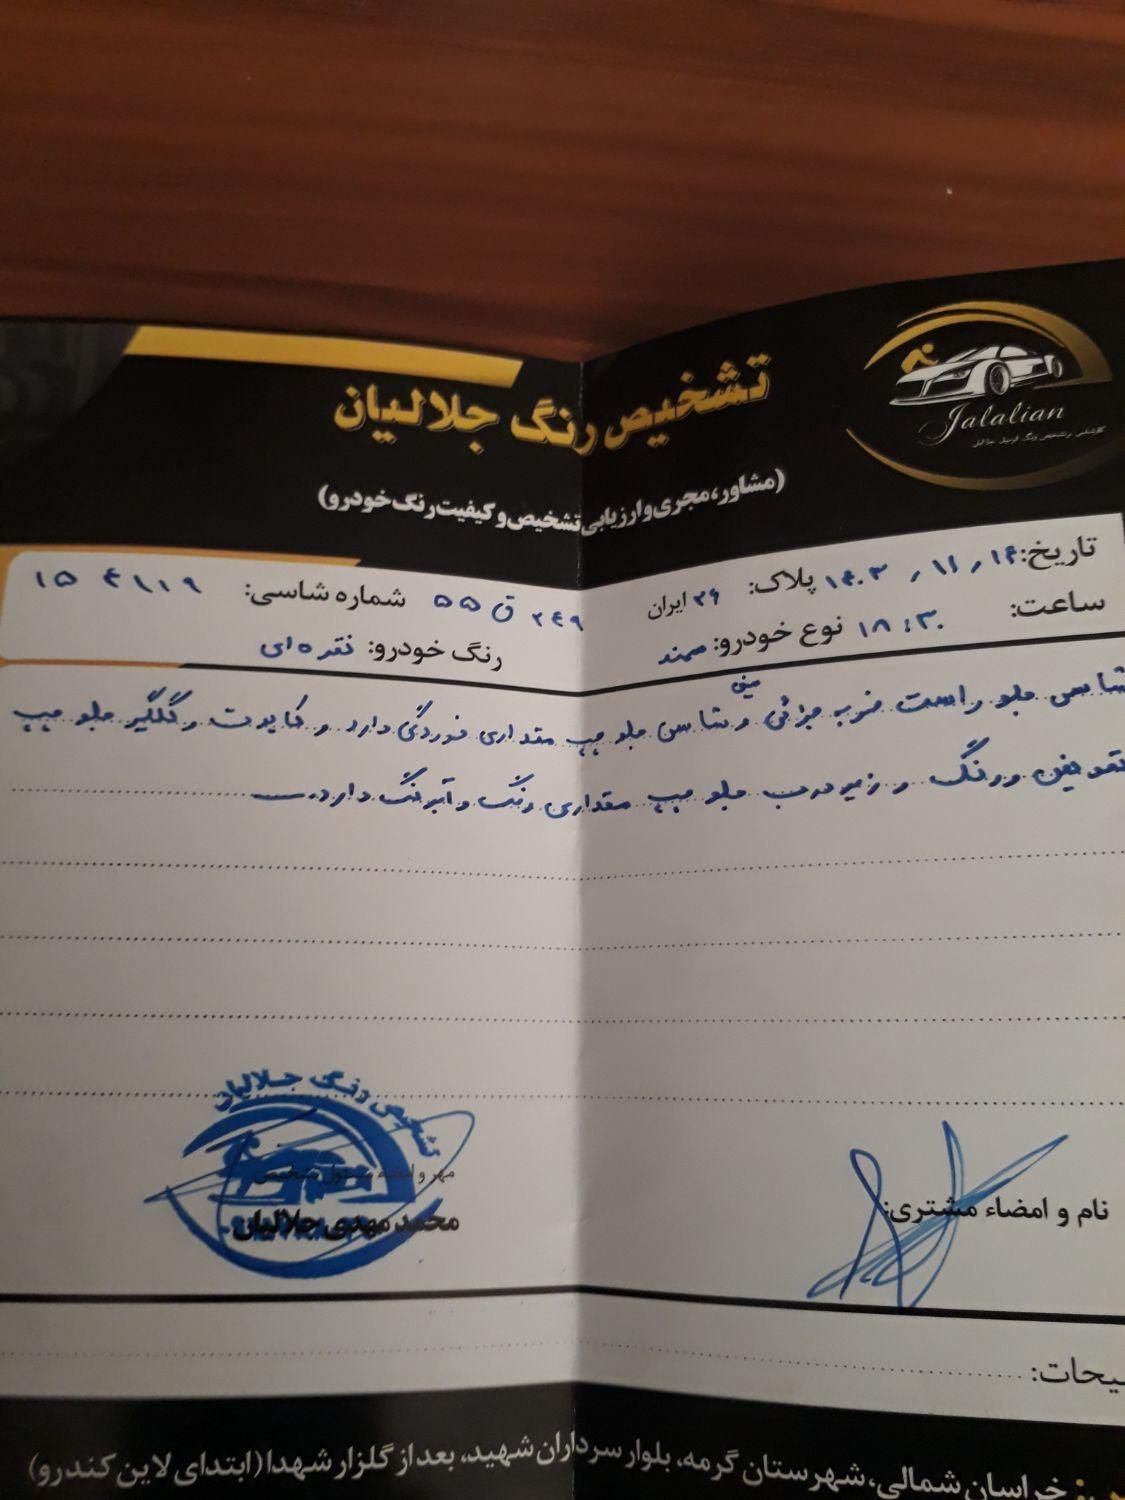 تشخیص رنگ جلالیان
Jalalian
(مشاور، مجری و ارزیابی تشخیص و کیفیت رنگ خودرو)
تاریخ: ۱۴۰۳/۱۱/۱۴ پلاک: ایران ۲۶ ۲۴۹ ق ۵۵ شماره شاسی:
ساعت: ۱۸:۳۰ نوع خودرو: سمند رنگ خودرو: نقره ای
شاسی جلو راست ضربه جزئی و شاسی جلو چپ مقداری خوردگی دارد و کاپوت و گلگیر جلو چپ
تعویض و رنگ و زیر درب جلو چپ مقداری رنگ و آبرنگ دارد
تشخیص رنگ جلالیان
مهر و امضاء مسئول تشخیص
محمد مهدی جلالیان
نام و امضاء مشتری:
خراسان شمالی، شهرستان گرمه، بلوار سرداران شهید، بعد از گلزار شهدا (ابتدای لاین کندرو)